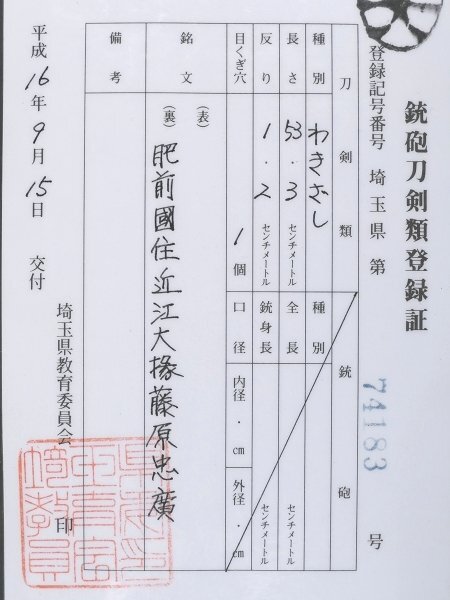 銃砲刀剣類登録証
登録記号番号 埼玉県 第 74183 号
刀剣類
銃砲
種別 わきざし
種別
長さ 53.3 センチメートル
全長 センチメートル
反り 1.2 センチメートル
銃身長 センチメートル
目くぎ穴 1個
口径 内径 ・cm 外径 ・cm
銘文 (表)
(裏) 肥前國住近江大掾藤原忠廣
備考
平成16年9月15日 交付
埼玉県教育委員会 印